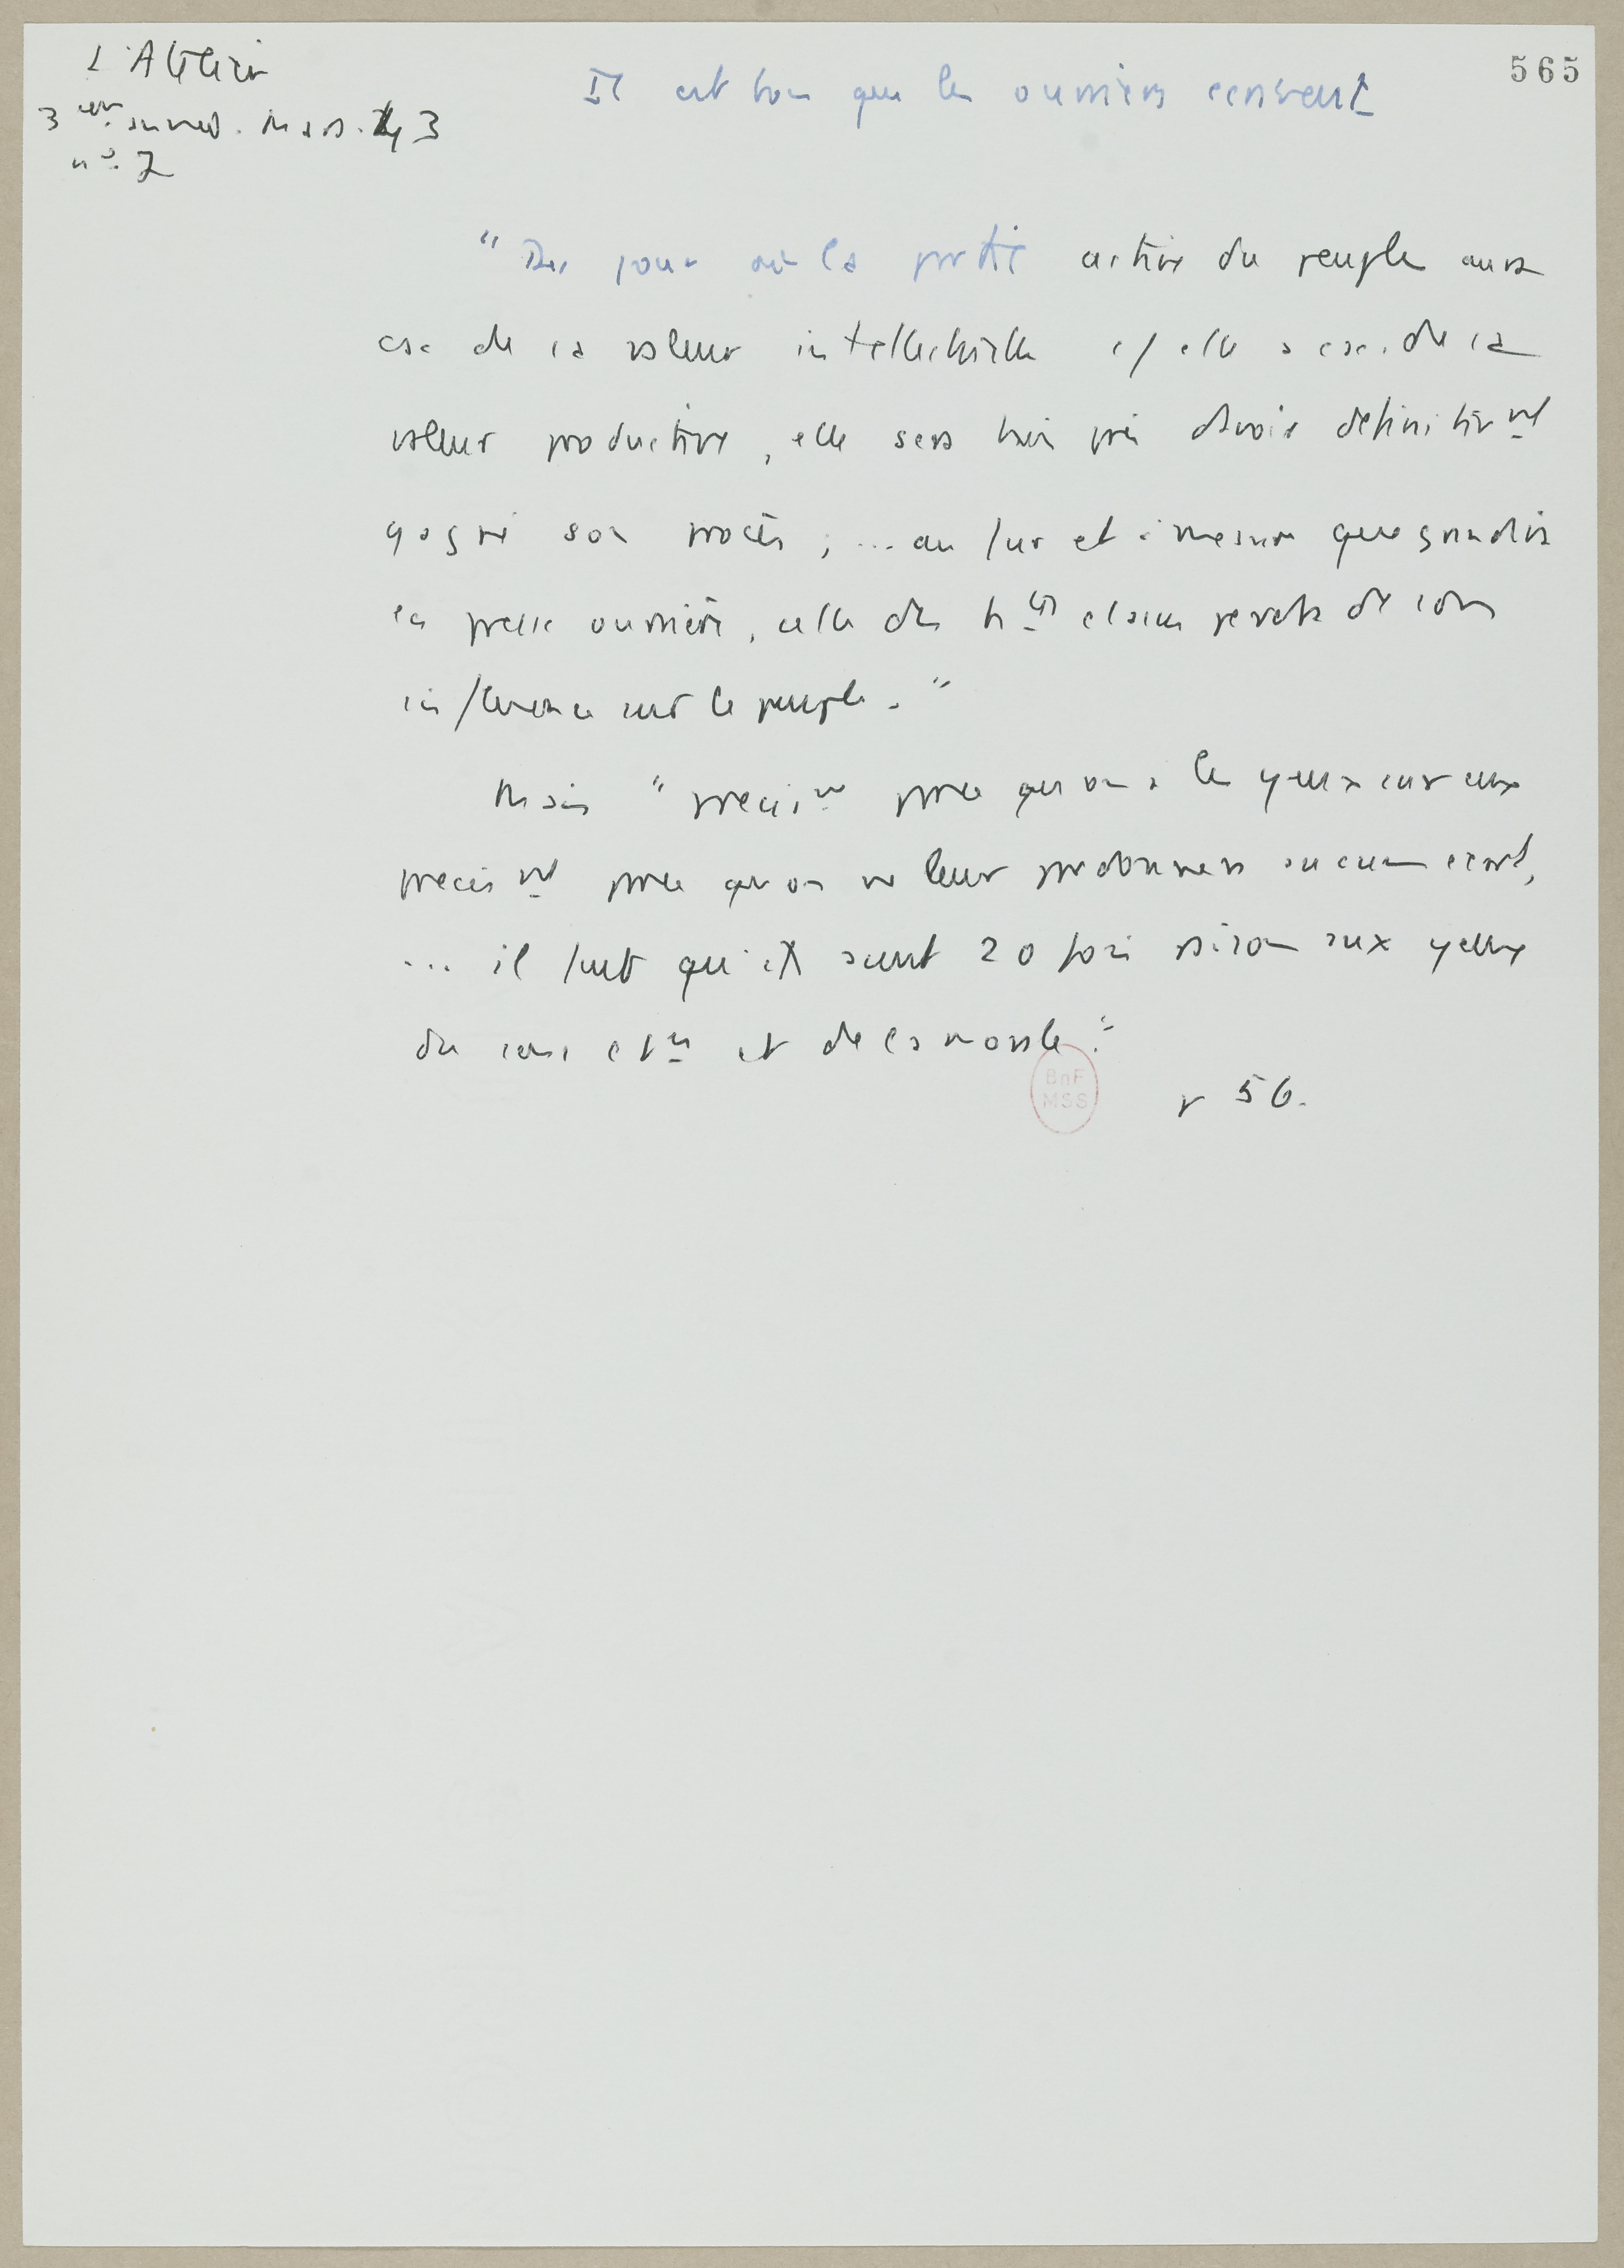 L'Atelier
3ème année. Mars. 43
n° 7
565
Il est bon que les ouvriers écrivent
"Du jour où la partie active du peuple aura
csc de sa valeur intellectuelle c/ elle a csc. de sa
valeur productive, elle sera bien près d'avoir définitivt
gagné son procès ; ... au fur et à mesure que grandira
la presse ouvrière, celle des htes classes perdra de son
influence sur le peuple."
Mais "précist parce qu'on a les yeux sur eux
précist parce qu'on ne leur pardonnera aucun écart,
... il faut qu'ils aient 20 fois raison aux yeux
du sens et de la morale."
p 56.
BnF
MSS